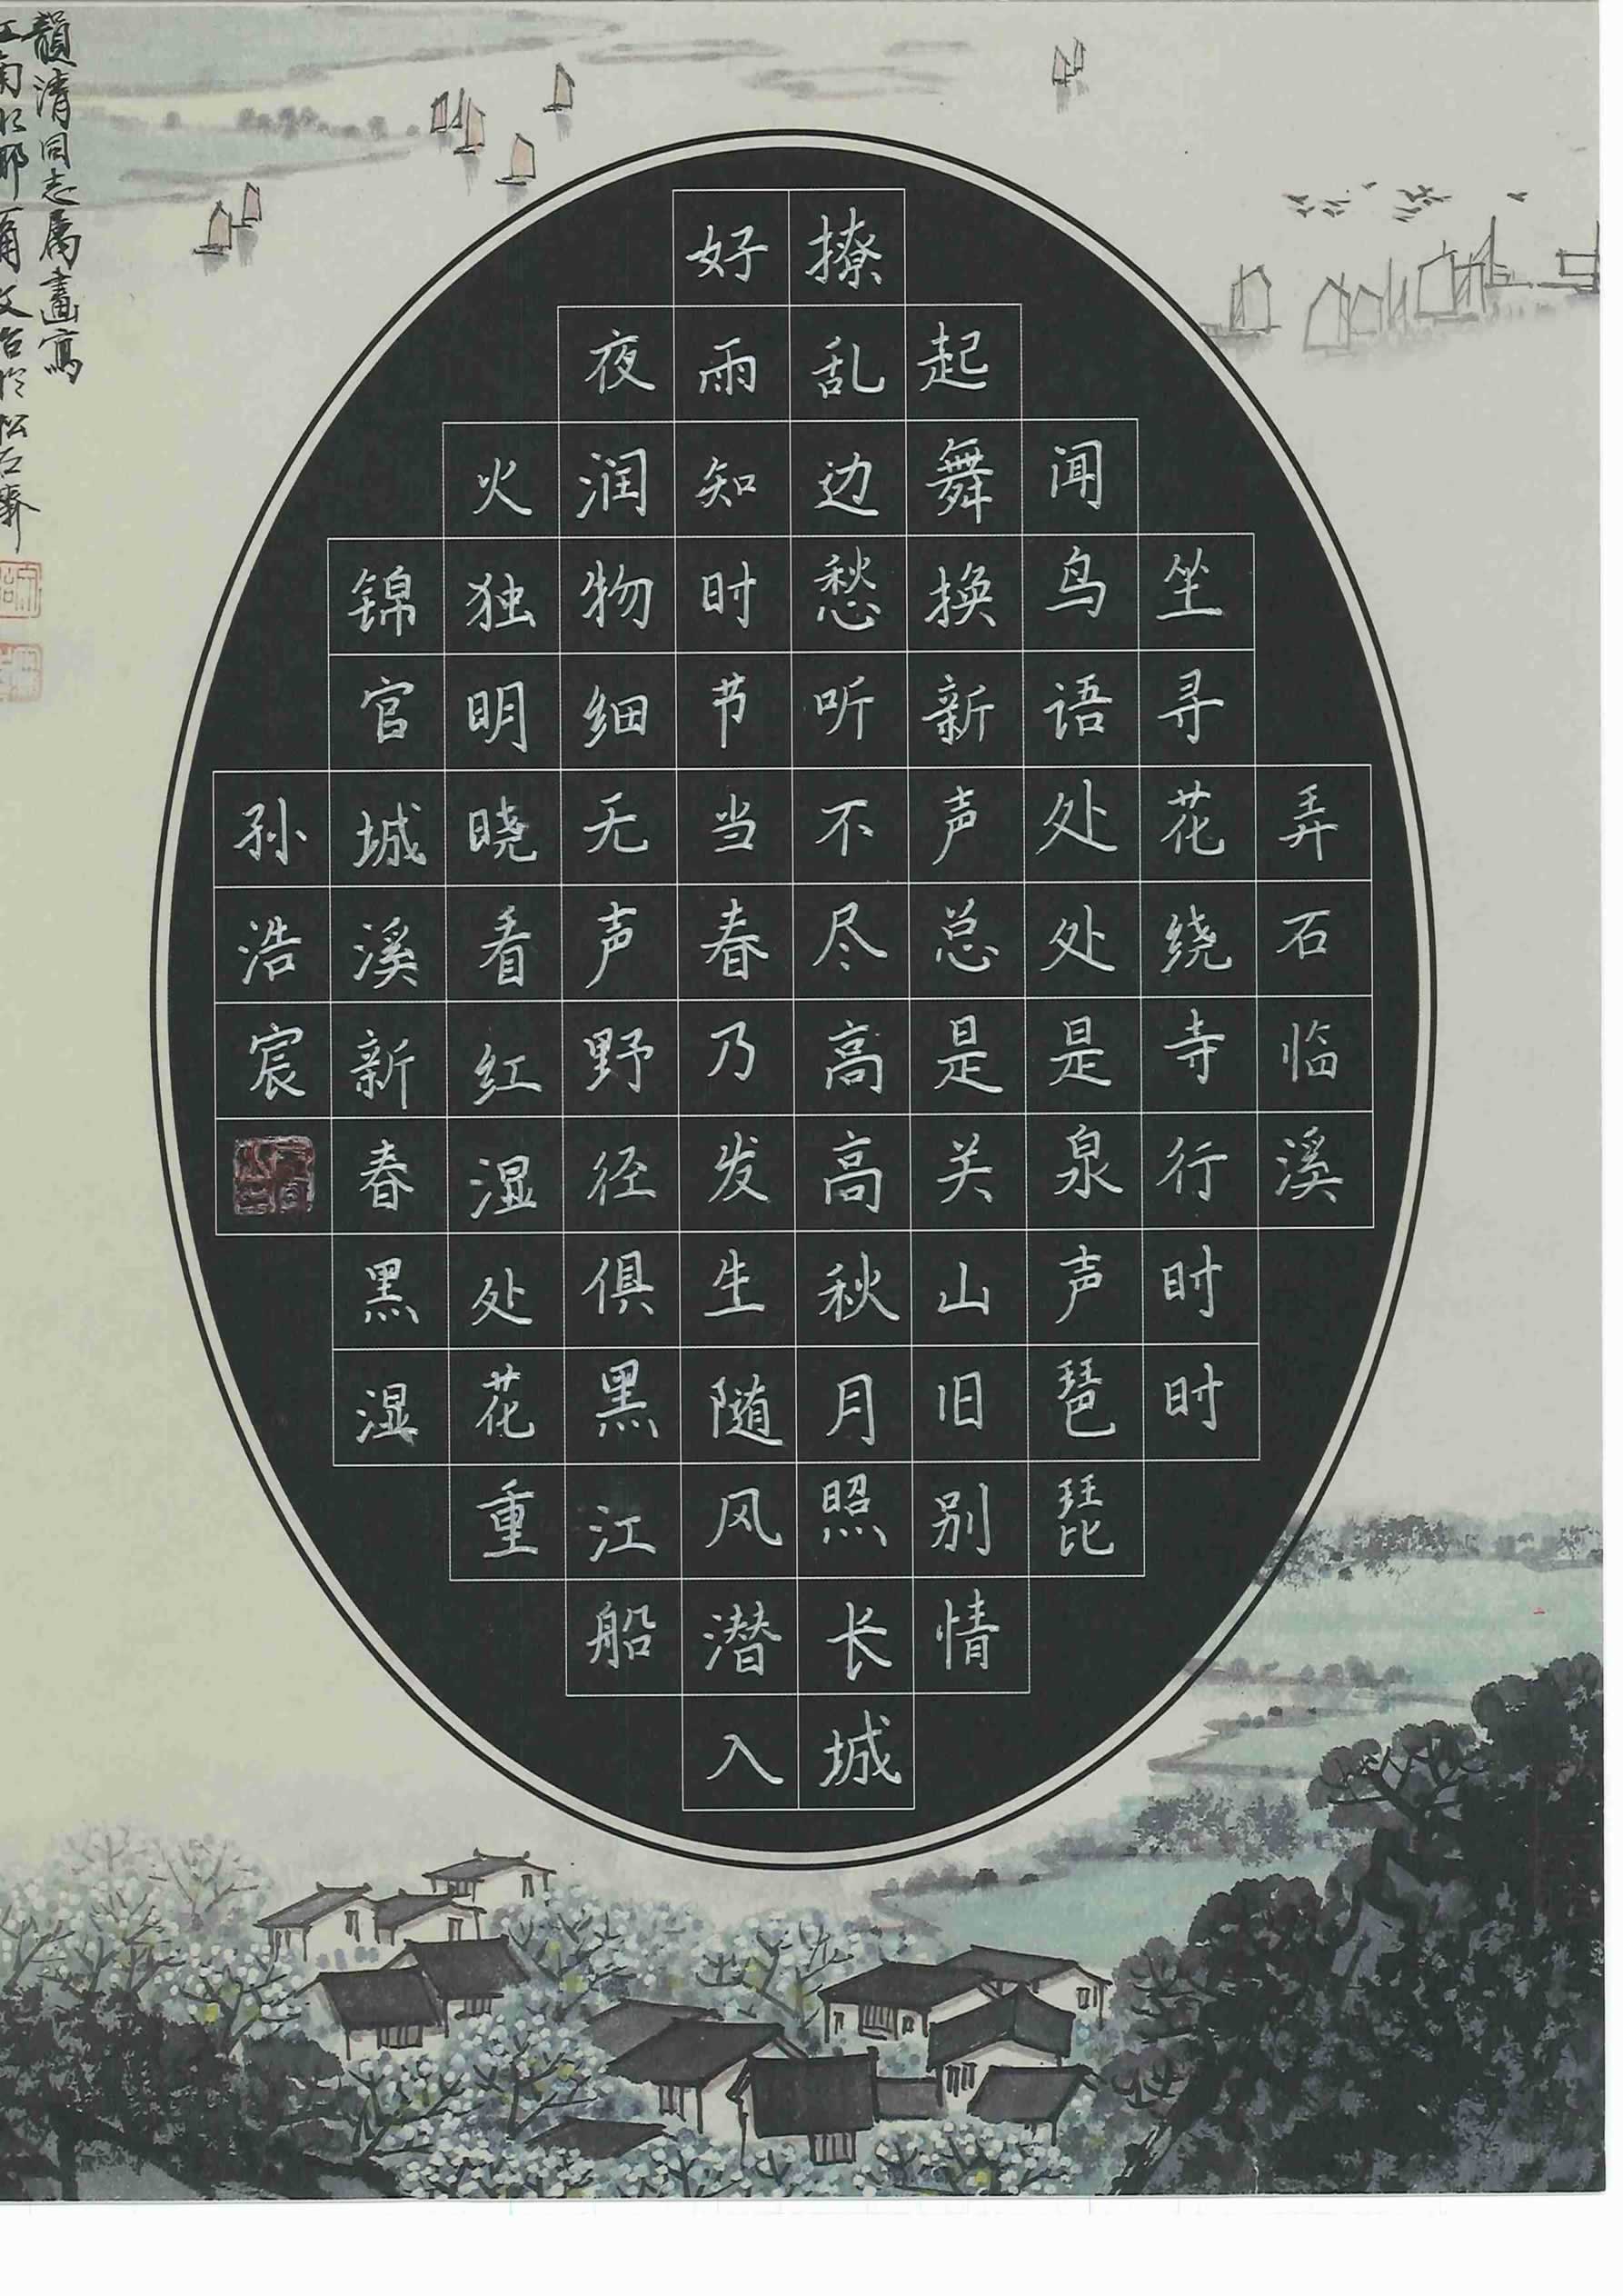 弄石临溪
坐寻花绕寺行时时
闻鸟语处处是泉声琵琵
起舞换新声总是关山旧别情
撩乱边愁听不尽高高秋月照长城
好雨知时节当春乃发生随风潜入
夜润物细无声野径俱黑江船
火独明晓看红湿处花重
锦官城溪新春黑湿
孙浩宸
韻清同志属畫寫